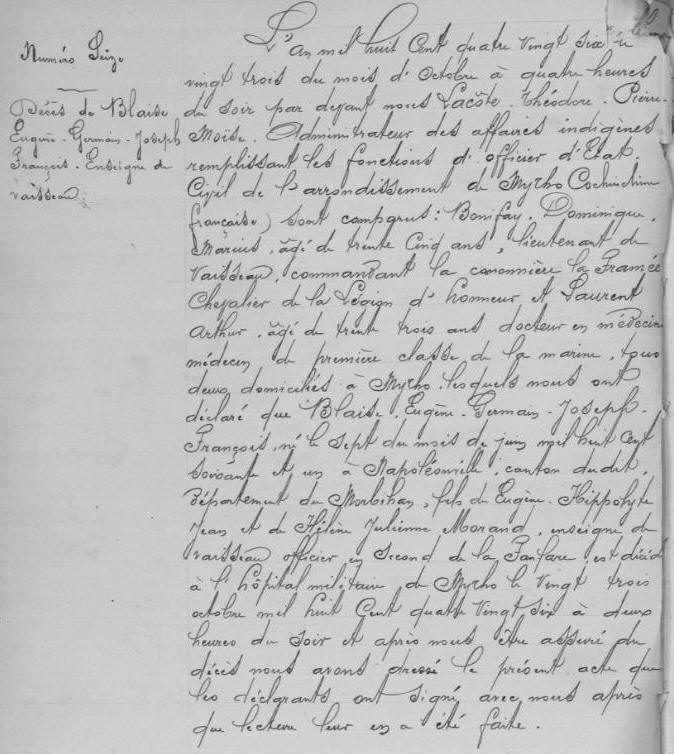 Numéro Seize
Décès de Blaise
Eugène. Germain. Joseph
François. Enseigne de
vaisseau.
L'an mil huit Cent quatre Vingt Six le
vingt trois du mois d'Octobre à quatre heures
du soir par devant nous Lacôte. Théodore. Pierre.
Moïse. Administrateur des affaires indigènes
remplissant les fonctions d'officier d'Etat.
Civil de l'arrondissement de Mytho Cochinchine
française) sont comparus: Bonifay. Dominique.
Marius, âgé de trente Cinq ans, lieutenant de
Vaisseau, commandant la canonnière la Framée
Chevalier de la Légion d'honneur et Laurent
Arthur, âgé de trente trois ans docteur en médecine
médecin de première classe de la marine, tous
deux domiciliés à Mytho, lesquels nous ont
déclaré que Blaise. Eugène. Germain. Joseph.
François, né le sept du mois de juin mil huit Cent
soixante et un à Napoléonville, canton dudit,
département du Morbihan, fils de Eugène. Hippolyte
Jean et de Hélène Julienne Morand, enseigne de
vaisseau officier en second de la Fanfare, est décédé
à l'hôpital militaire de Mytho le Vingt trois
octobre mil huit Cent quatre Vingt Six à deux
heures du soir et après nous être assuré du
décès nous avons dressé le présent acte que
les déclarants ont signé avec nous après
que lecture leur en a été faite.